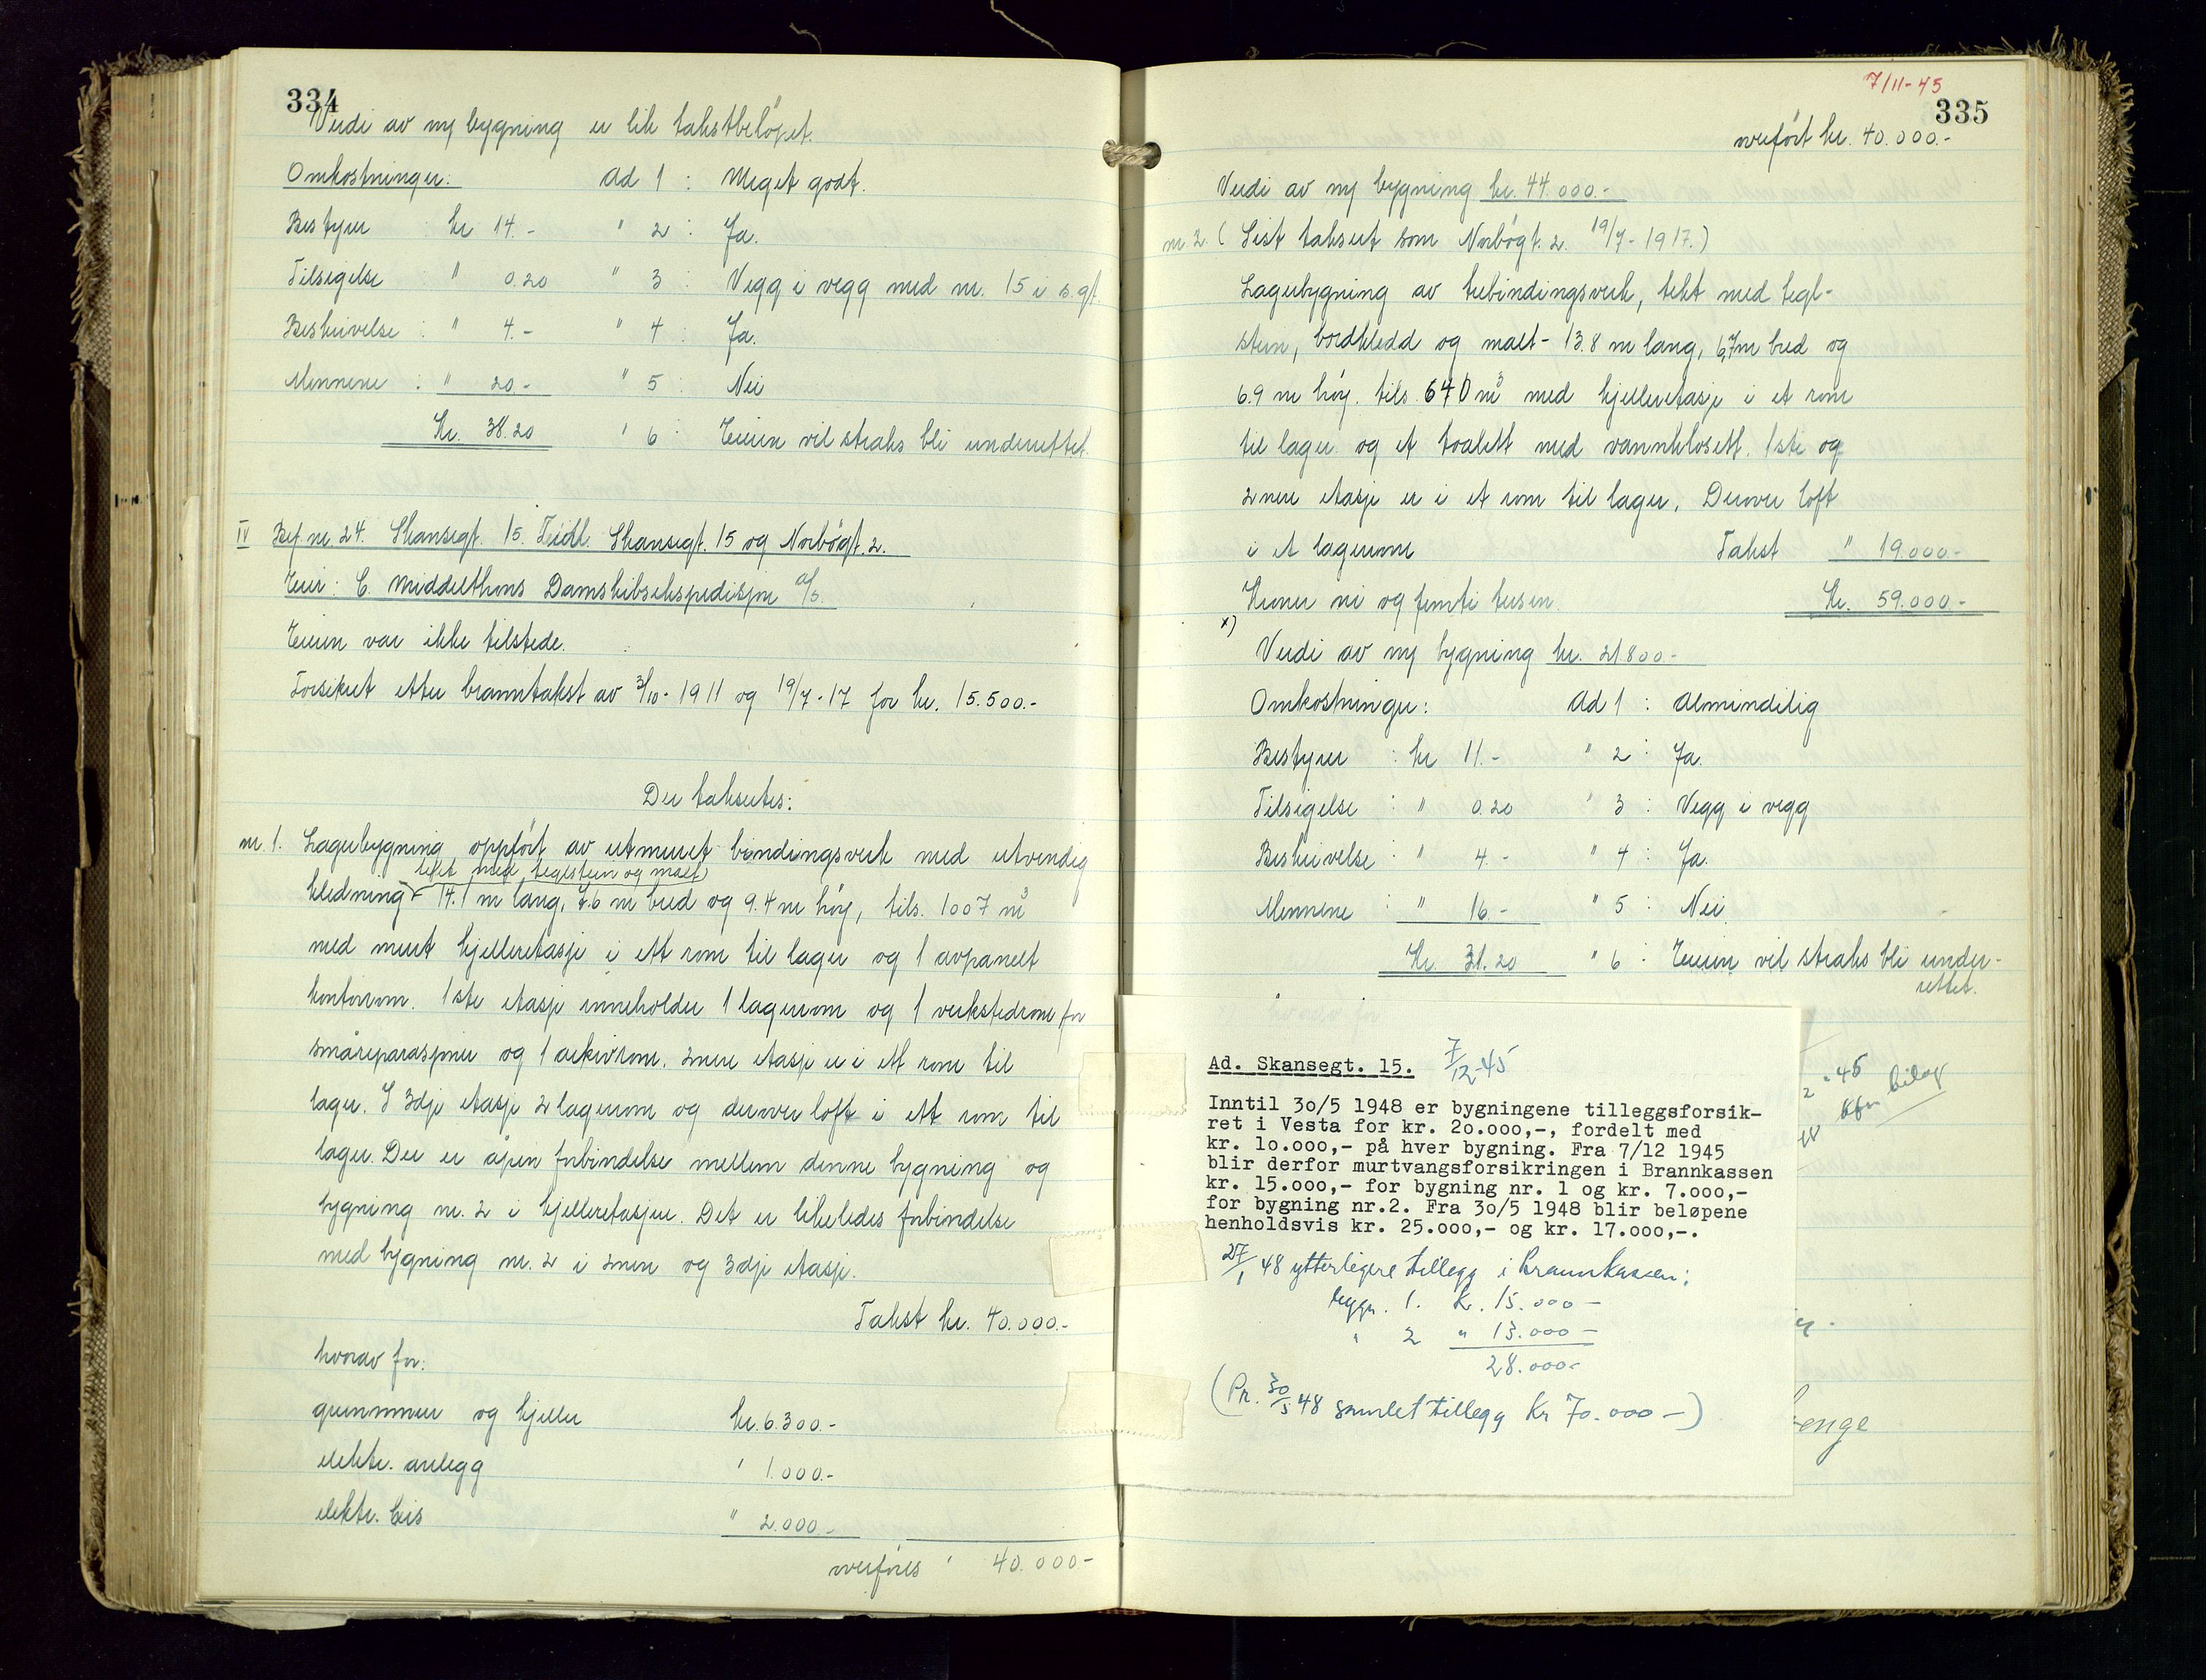 334
Verdi av ny bygning er lik takstbeløpet.
Omkostninger: ad 1 : Meget godt.
Bestyrer : kr 14.- " 2 : Ja.
Tilsigelse " 0.20 " 3 : Vegg i vegg med nr. 15 i s.gt.
Beskrivelse : " 4.- " 4 : Ja.
Mennene : " 20.- " 5 : Nei
Kr. 38.20 " 6 : Eieren vil straks bli underrettet.
IV Bef. nr. 24. Skansegt. 15. Tidl. Skansegt. 15 og Norbøgt. 2.
Eier: C. Middelthons Damskibsekspedisjon a/s.
Eieren var ikke tilstede.
Forsikret etter branntakst av 3/10-1911 og 19/7-17 for kr. 15.500.-
Der takseres:
nr. 1. Lagerbygning oppført av utmuret bindingsverk med utvendig
tekt med teglstein og malt
kledning 14.1 m lang, 7.6 m bred og 9.4 m høy, tils. 1007 m³
med muret kjelleretasje i ett rom til lager og 1 avpanelt
kontorrom. 1ste etasje inneholder 1 lagerrom og 1 verkstedrom for
småreparasjoner og 1 arkivrom. 2nen etasje er i ett rom til
lager. I 3dje etasje 2 lagerrom og derover loft i ett rom til
lager. Der er åpen forbindelse mellem denne bygning og
bygning nr. 2 i kjelleretasjen. Det er likeledes forbindelse
med bygning nr. 2 i 2nen og 3dje etasje.
Takst kr. 40.000.-
hvorav for:
grunnmur og kjeller kr. 6.300.-
elektr. anlegg " 1.000.-
elektr. heis " 2.000.-
overføres " 40.000-
7/11-45
335
overført kr. 40.000.-
Verdi av ny bygning kr. 44.000.-
nr 2. (Sist taksert som Norbøgt. 2. 19/7-1917.)
Lagerbygning av trebindingsverk, tekt med tegl-
stein, bordkledd og malt - 13.8 m lang, 6,7m bred og
6.9 m høy. tils. 640 m³ med kjelleretasje i et rom
til lager og et toalett med vannklosett. 1ste og
2nen etasje er i et rom til lager. Derover loft
i et lagerrom Takst " 19.000.-
Kroner ni og femti tusen Kr. 59.000.-
x)
Verdi av ny bygning kr. 21.800.-
Omkostninger: ad 1 : Almindelig
Bestyrer : kr 11.- " 2 : Ja.
Tilsigelse : " 0.20 " 3 : Vegg i vegg
Beskrivelse : " 4.- " 4 : Ja.
Mennene : " 16.- " 5 : Nei
Kr. 31.20 " 6 : Eieren vil straks bli under-
rettet.
Ad. Skansegt. 15. 7/12-45
Inntil 30/5 1948 er bygningene tilleggsforsik-
ret i Vesta for kr. 20.000,-, fordelt med
kr. 10.000,- på hver bygning. Fra 7/12 1945
blir derfor murtvangsforsikringen i Brannkassen
kr. 15.000,- for bygning nr. 1 og kr. 7.000,-
for bygning nr.2. Fra 30/5 1948 blir beløpene
henholdsvis kr. 25.000,- og kr. 17.000,-.
27/1 48 ytterligere tillegg i Brannkassen:
bygn. 1. kr. 15.000-
" 2 " 13.000-
28.000-
(Pr. 30/5 48 samlet tillegg kr 70.000-)
2-45
bilag
enge